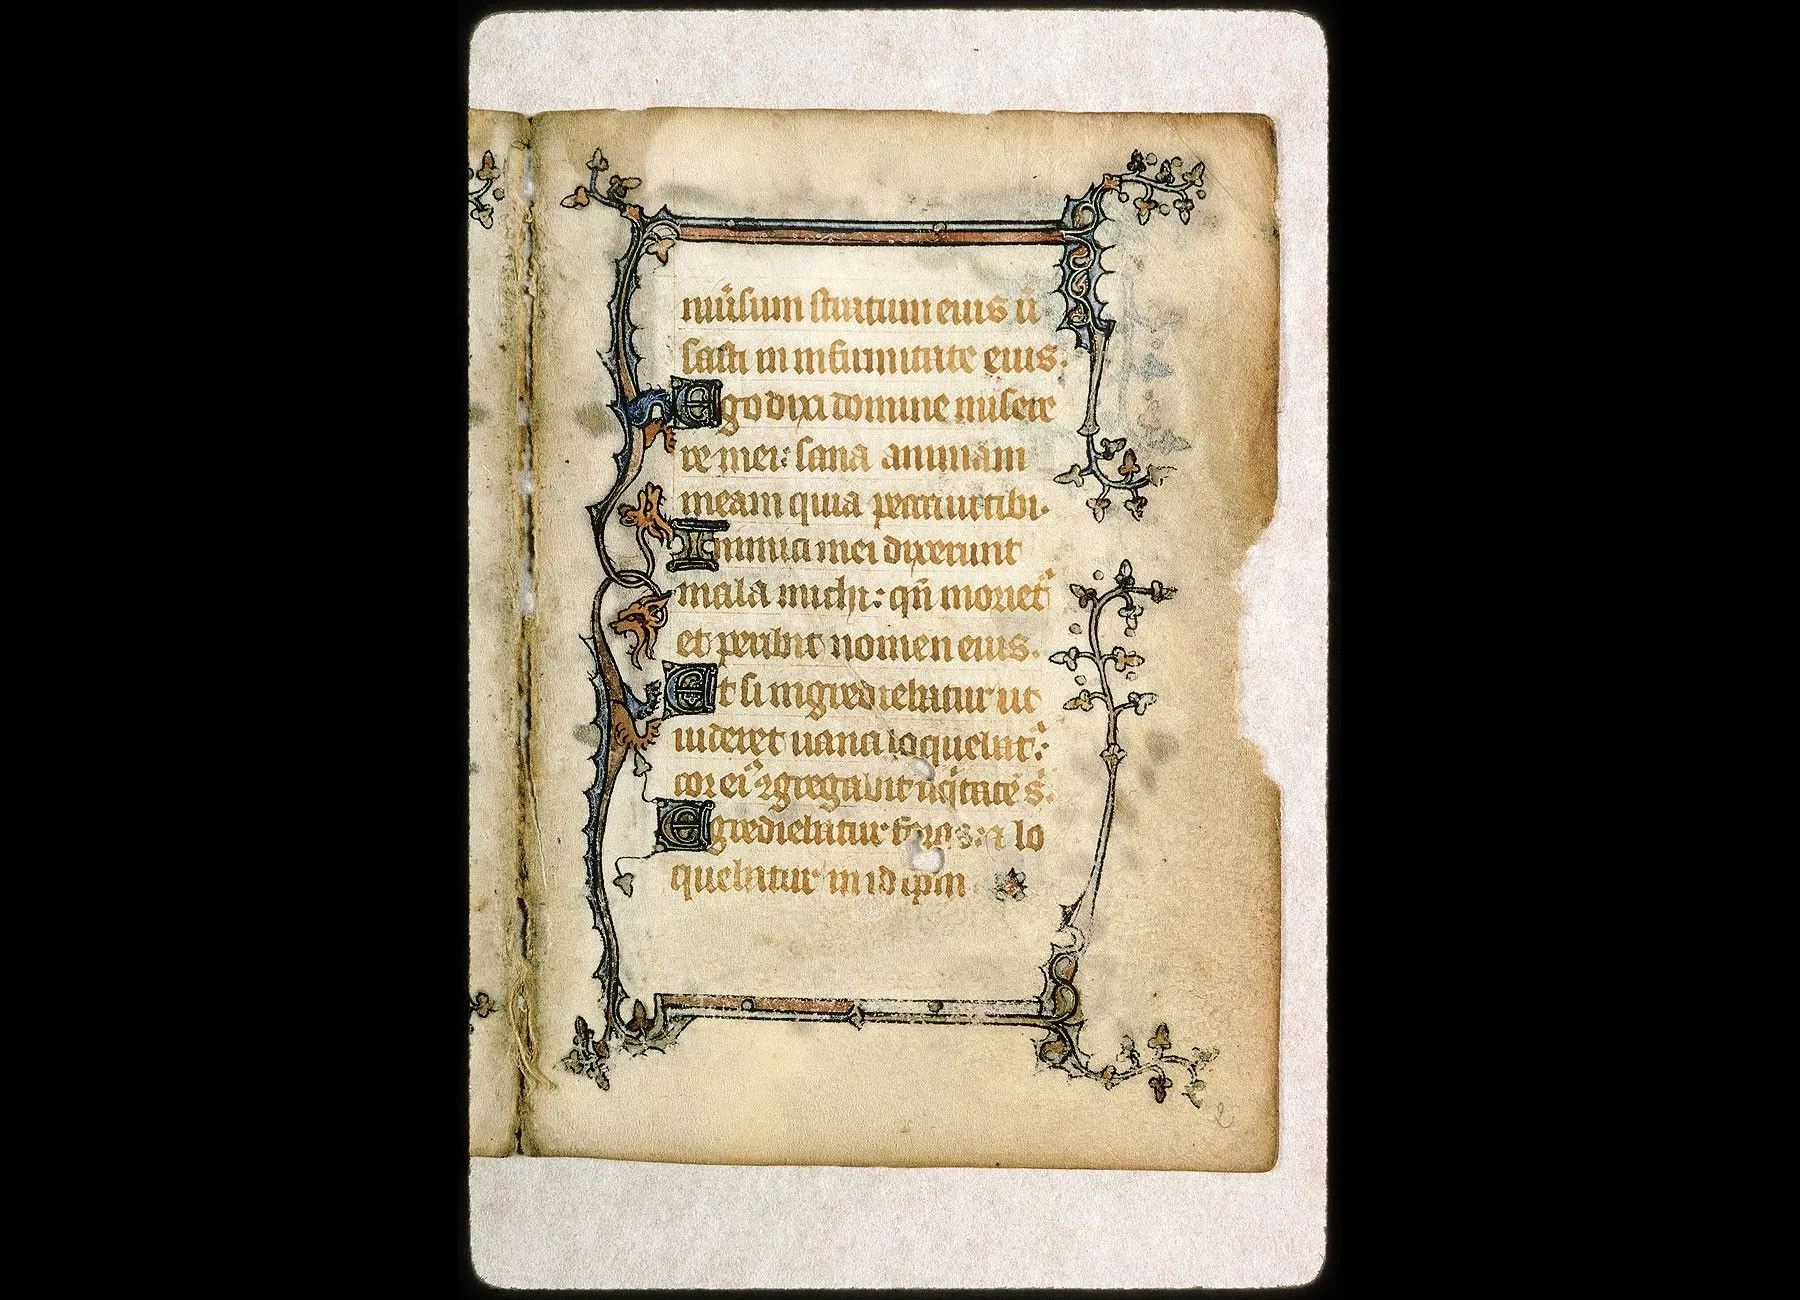 niūsum stratum eius ū
sasti in infirmitate eius.
Ego dixi domine misere
re mei: sana animam
meam quia peccaui tibi.
Inimici mei dixerunt
mala michi: qn̄ moriet᷑
et peribit nomen eius.
Et si ingrediebatur ut
uideret uana loquebat᷑:
cor ei᷒ ꝯgregabit iīqͥtatē s.
Egrediebatur foras: ⁊ lo
quebatur in id ipm̄